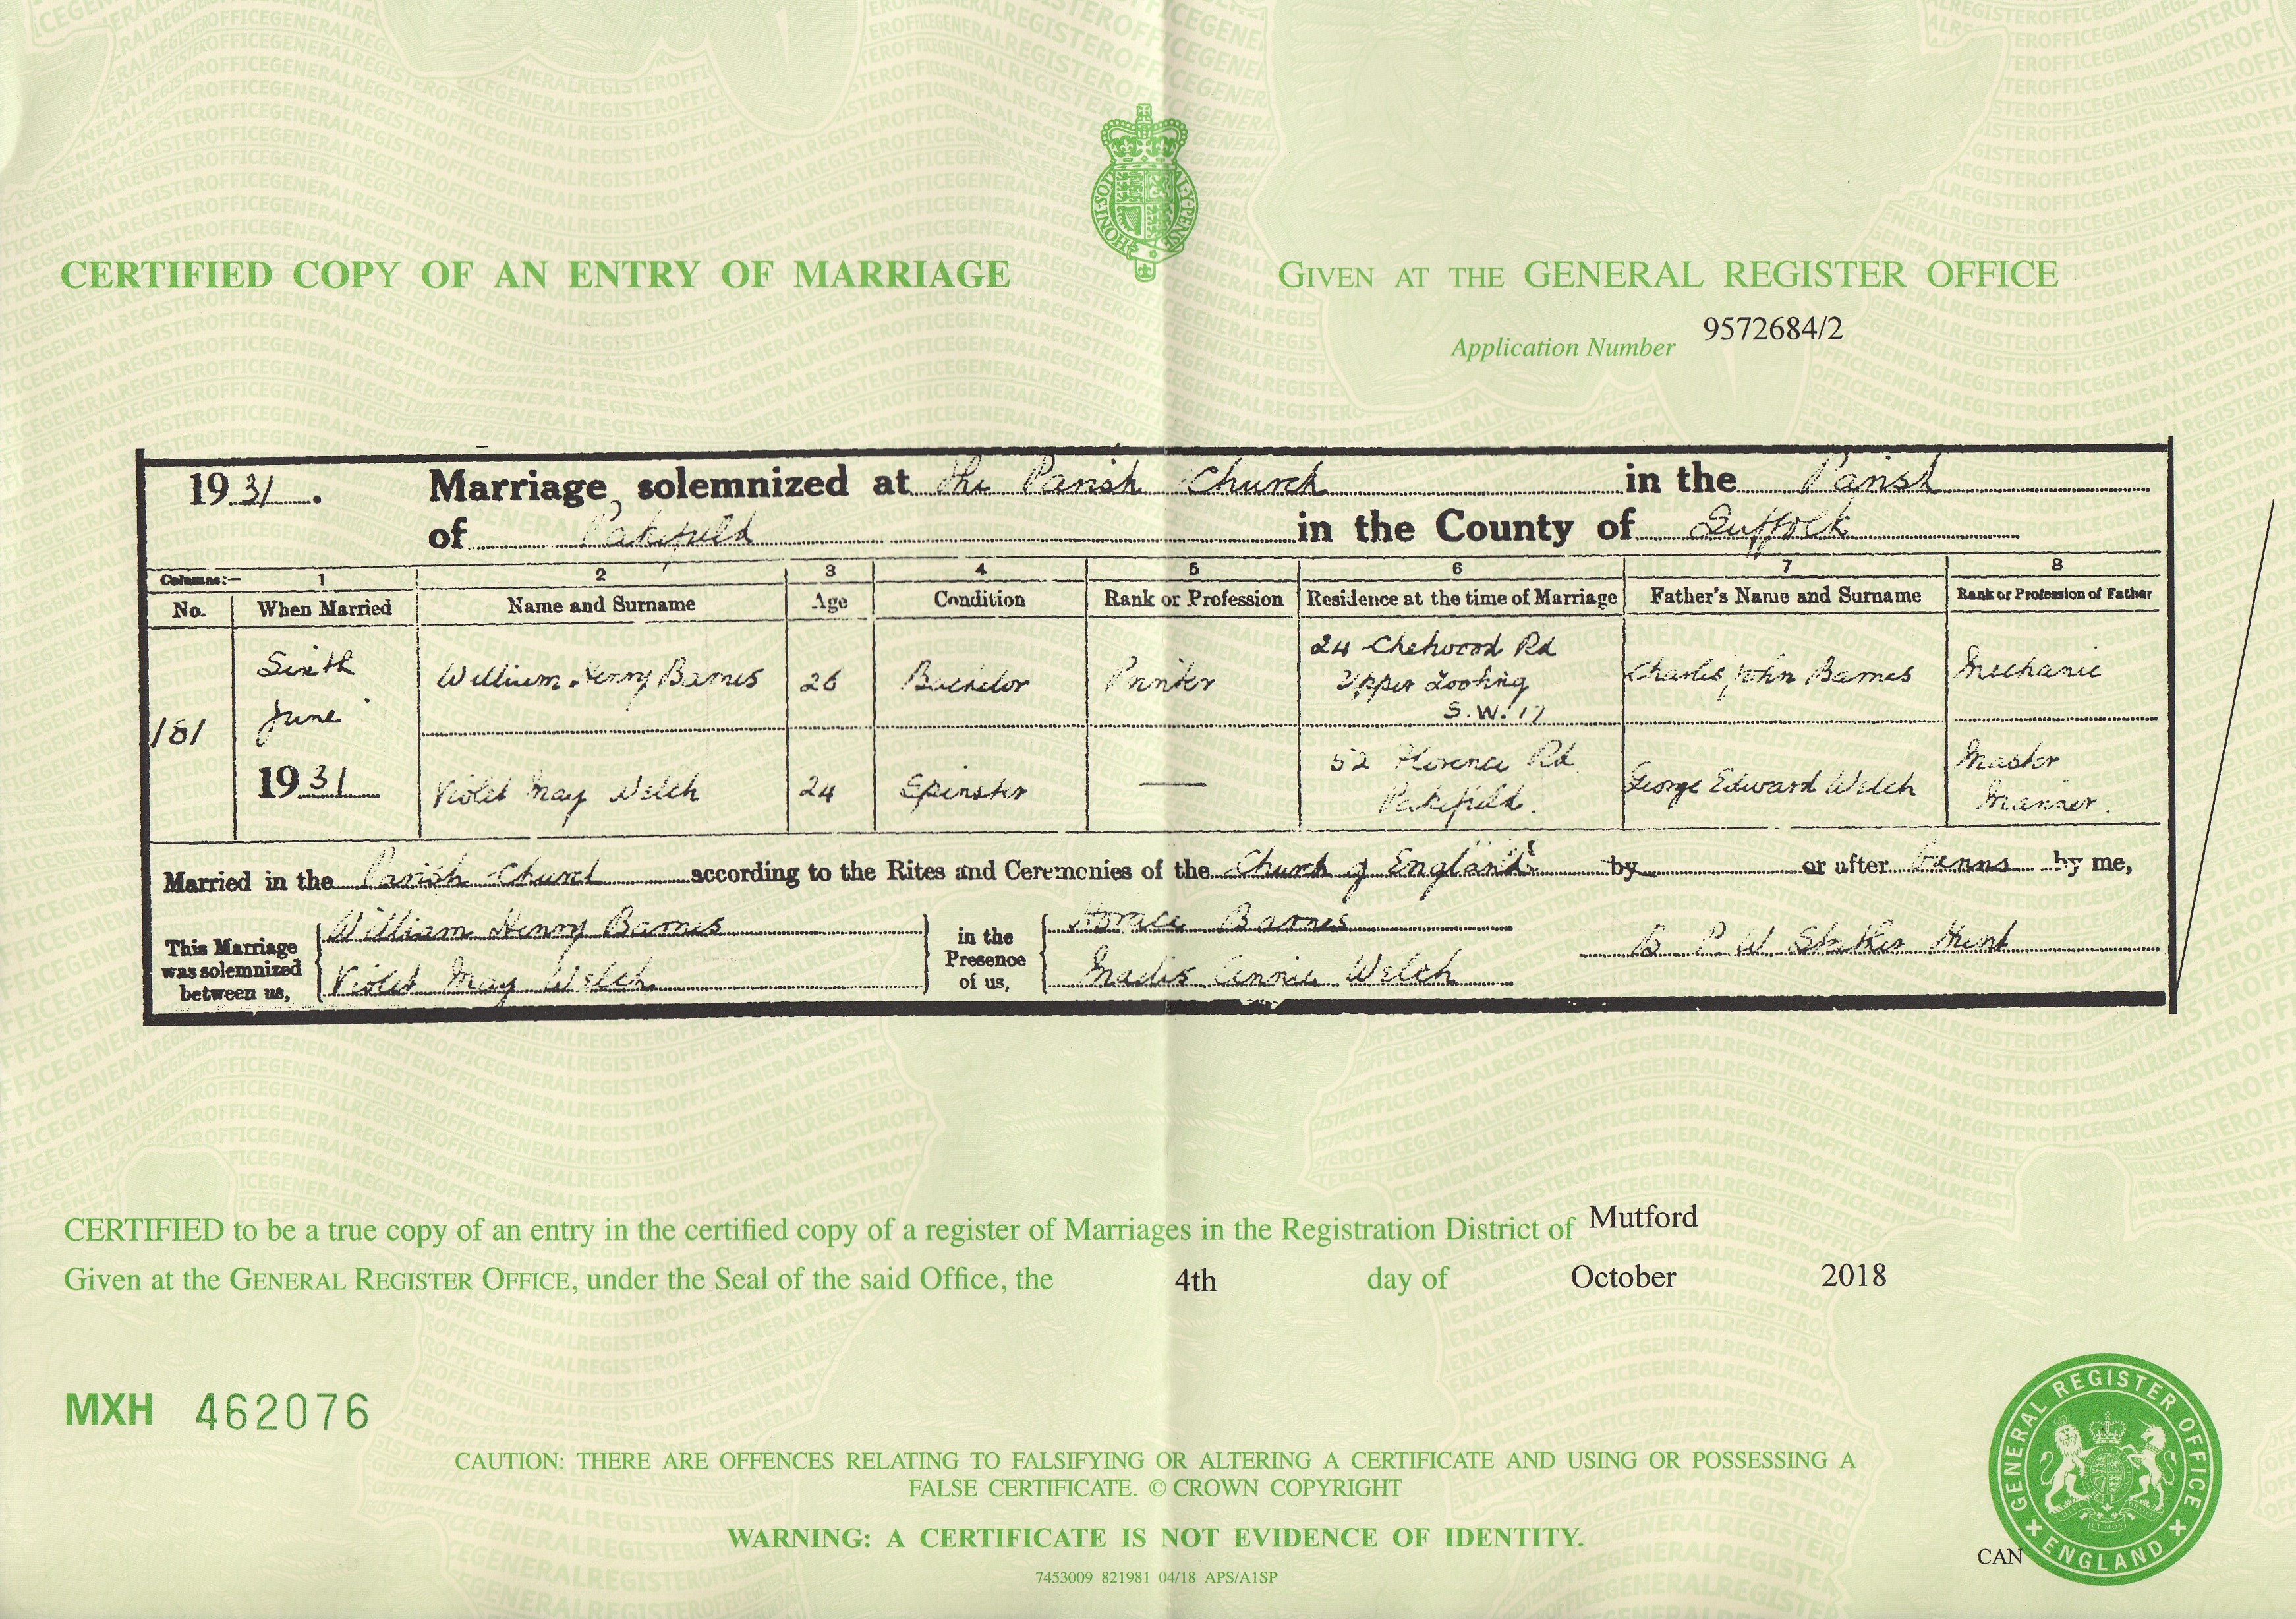 HONI·SOIT AL·Y·PENSE
CERTIFIED COPY OF AN ENTRY OF MARRIAGE
GIVEN AT THE GENERAL REGISTER OFFICE
Application Number 9572684/2
1931. Marriage solemnized at The Parish Church in the Parish
of Pakefield in the County of Suffolk
Columns:— 1 2 3 4 5 6 7 8
No. When Married Name and Surname Age Condition Rank or Profession Residence at the time of Marriage Father's Name and Surname Rank or Profession of Father
181 Sixth June 1931
William Henry Barnes 26 Bachelor Printer 24 Chetwood Rd Upper Tooting S.W. 17 Charles John Barnes Mechanic
Violet May Welch 24 Spinster — 52 Florence Rd. Pakefield. George Edward Welch Master Mariner.
Married in the Parish Church according to the Rites and Ceremonies of the Church of England by or after Banns by me,
This Marriage was solemnized between us,
William Henry Barnes
Violet May Welch
in the Presence of us,
Horace Barnes
Annie Welch
B P W Hunt
CERTIFIED to be a true copy of an entry in the certified copy of a register of Marriages in the Registration District of Mutford
Given at the GENERAL REGISTER OFFICE, under the Seal of the said Office, the 4th day of October 2018
MXH 462076
CAUTION: THERE ARE OFFENCES RELATING TO FALSIFYING OR ALTERING A CERTIFICATE AND USING OR POSSESSING A
FALSE CERTIFICATE. © CROWN COPYRIGHT
WARNING: A CERTIFICATE IS NOT EVIDENCE OF IDENTITY.
7453009 821981 04/18 APS/A1SP
CAN
GENERAL REGISTER OFFICE
ENGLAND